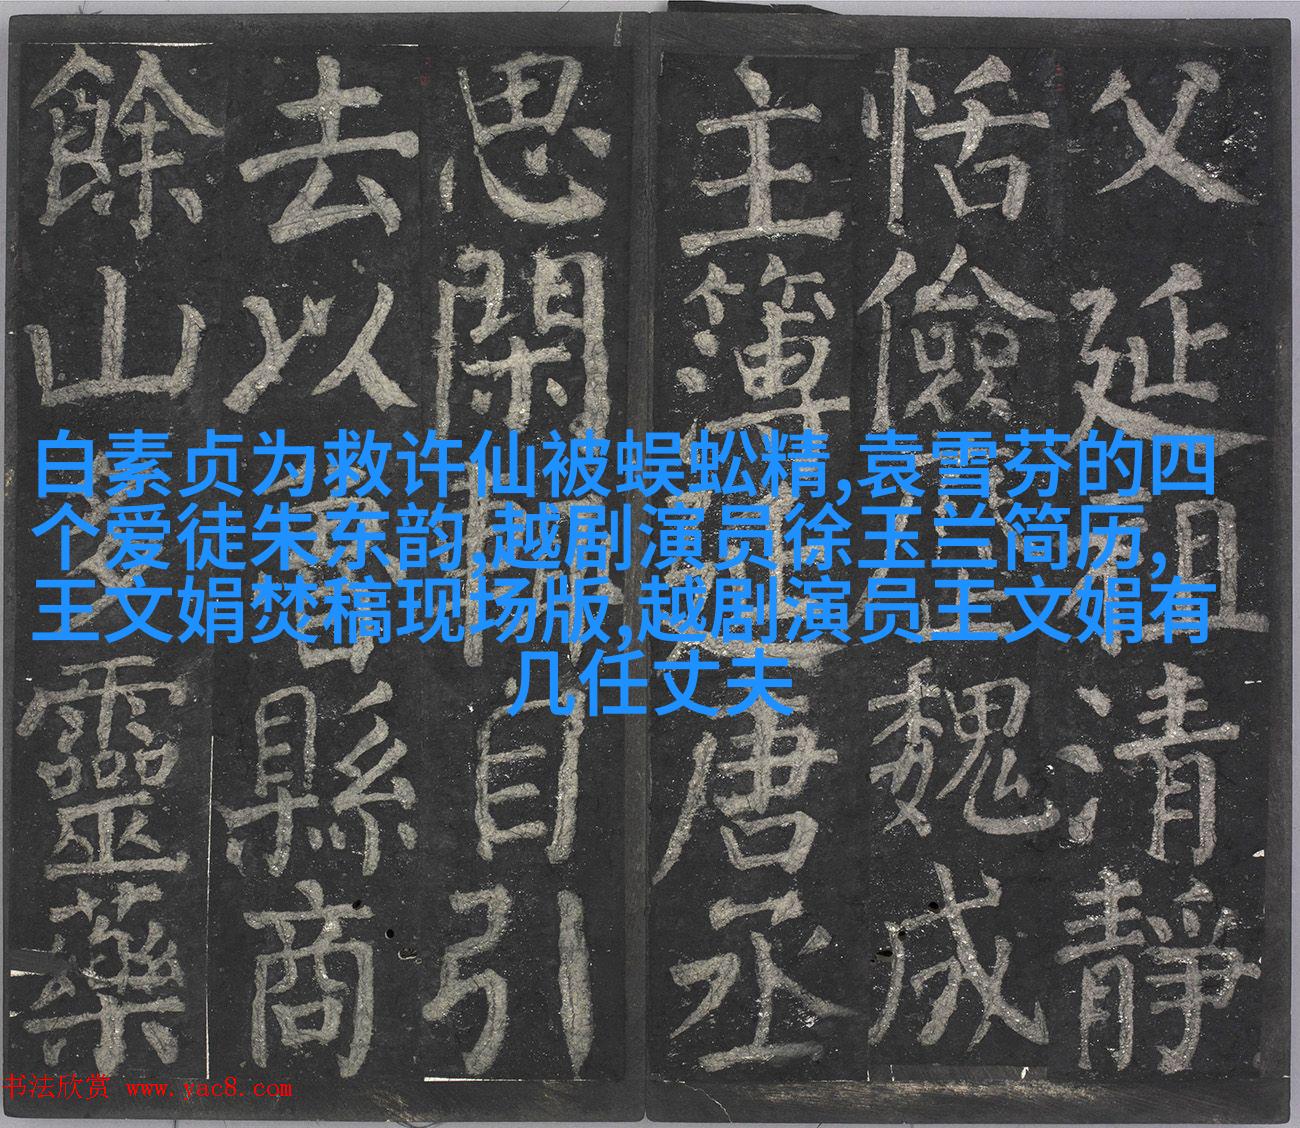 父延祖清靜
恬儉魏成
主簿唐丞
思閑自引
去以縣商
餘山靈藥
白素贞为救许仙被蜈蚣精,袁雪芬的四
个爱徒朱东韵,越剧演员徐玉兰简历,
王文娟焚稿现场版,越剧演员王文娟有
几任丈夫
书法欣赏 www.yac8.com